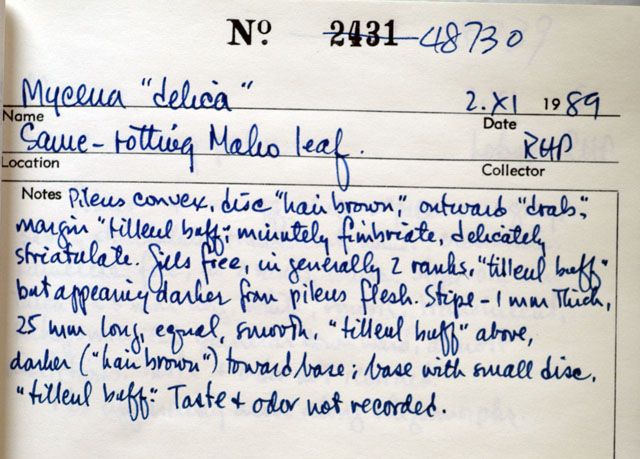 Nº 2431 48730
Mycena "delica" 2.XI 1989
Name Date
Same-rotting Maho leaf. RHP
Location Collector
Notes Pileus convex, disc "hair brown," outward "drab,"
margin "tilleul buff"; minutely fimbriate, delicately
striatulate. Gills free, in generally 2 ranks, "tilleul buff"
but appearing darker from pileus flesh. Stipe - 1 mm thick,
25 mm long, equal, smooth, "tilleul buff" above,
darker ("hair brown") toward base; base with small disc,
"tilleul buff." Taste & odor not recorded.